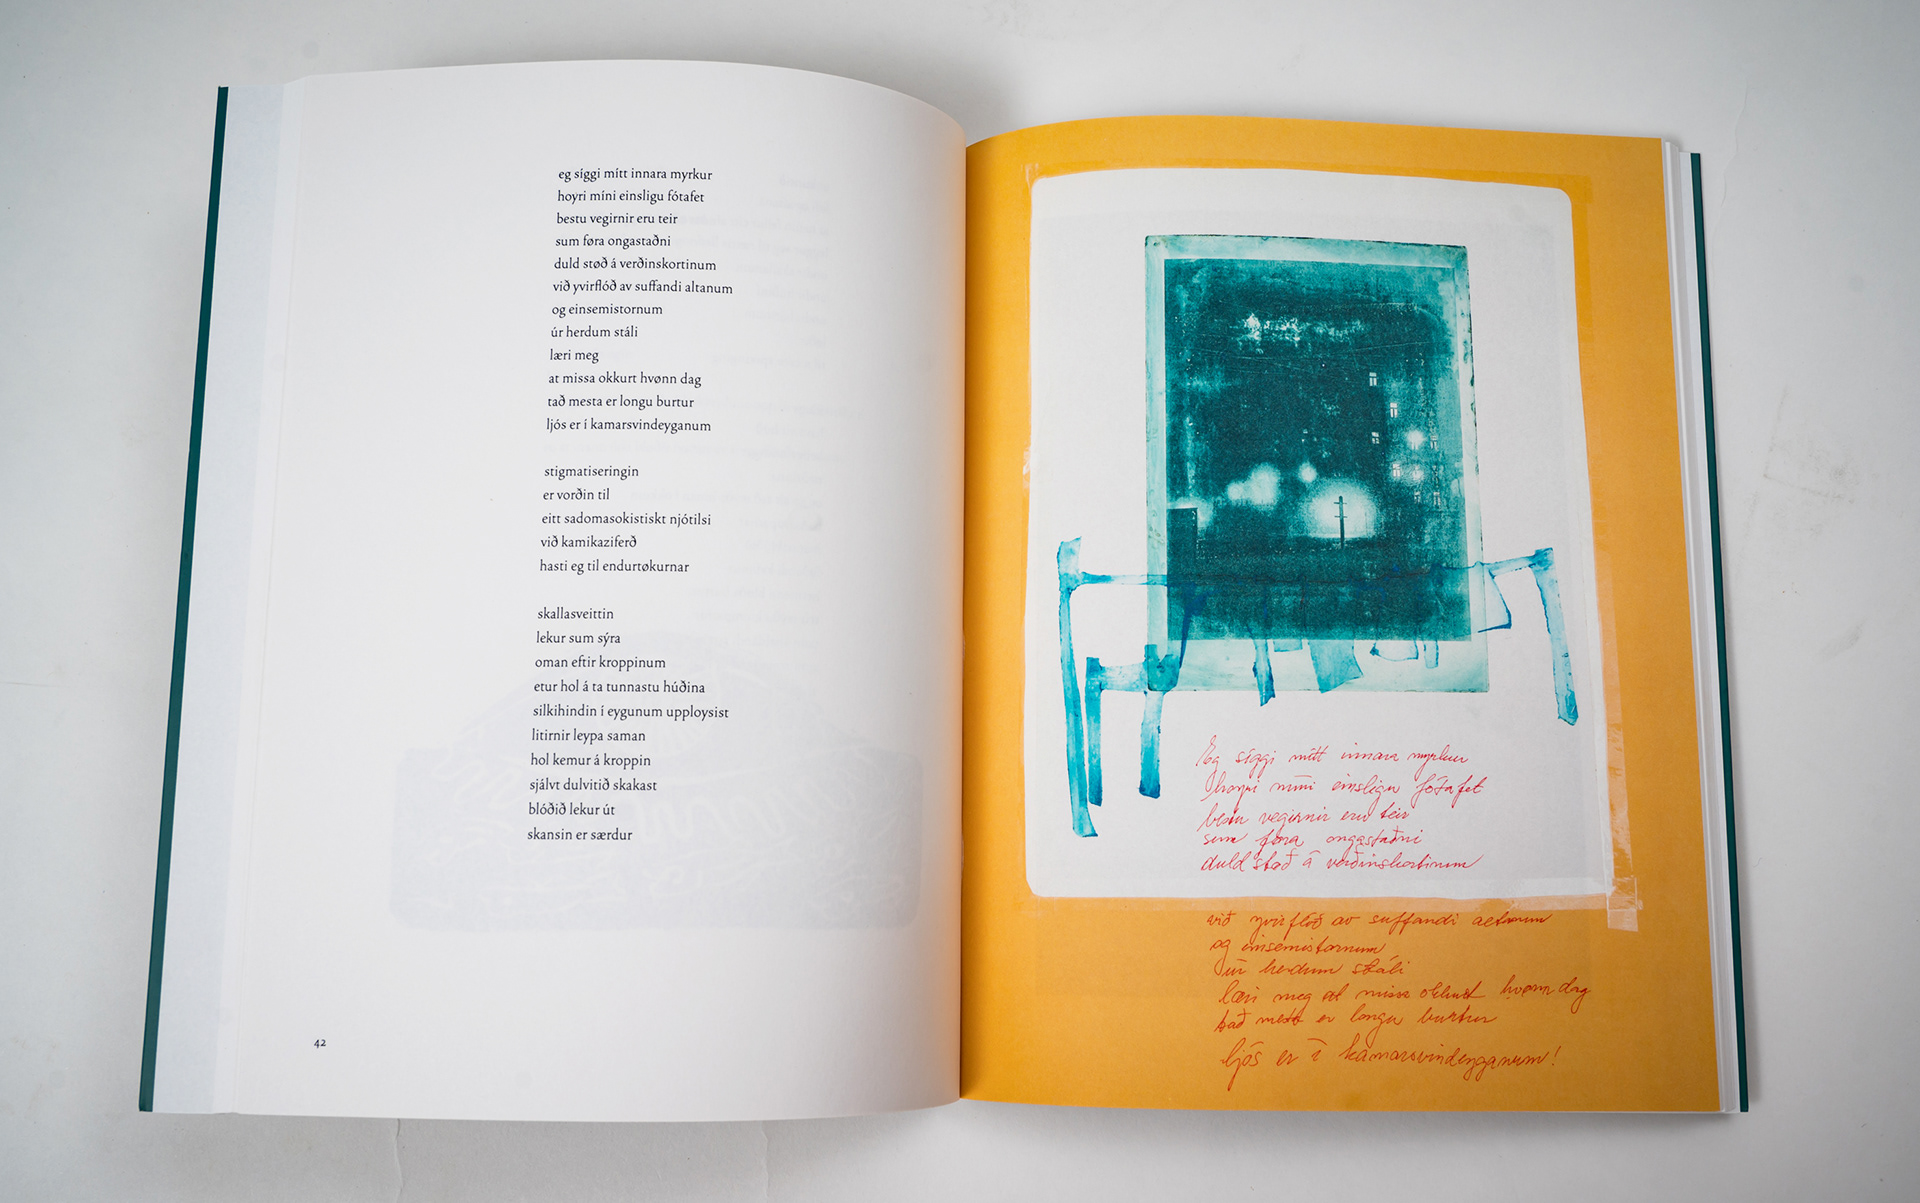 eg síggi mítt innara myrkur
hoyri míni einsligu fótafet
bestu vegirnir eru teir
sum føra ongastaðni
duld støð á verðinskortinum
við yvirflóð av suffandi altanum
og einsemistornum
úr herdum stáli
læri meg
at missa okkurt hvønn dag
tað mesta er longu burtur
ljós er í kamarsvindeyganum
stigmatiseringin
er vorðin til
eitt sadomasokistiskt njótilsi
við kamikaziferð
hasti eg til endurtøkurnar
skallasveittin
lekur sum sýra
oman eftir kroppinum
etur hol á ta tunnastu húðina
silkihindin í eygunum upploysist
litirnir leypa saman
hol kemur á kroppin
sjálvt dulvitið skakast
blóðið lekur út
skansin er særdur
42
Eg síggi mítt innara myrkur
hoyri míni einsligu fótafet
bestu vegirnir eru teir
sum føra ongastaðni
duld støð á verðinskortinum
við yvirflóð av suffandi altanum
og einsemistornum
úr herdum stáli
læri meg at missa okkurt hvønn dag
tað mesta er longu burtur
ljós er í kamarsvindeyganum!